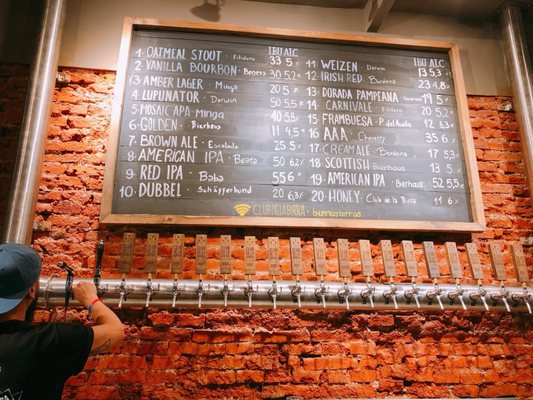 IBU ALC
1 OATMEAL STOUT · Fihidero 33 5
2 VANILLA BOURBON · Beoero 30 5.2
3 AMBER LAGER · Minga 20 5
4 LUPUNATOR · Darwin 50 5.5
5 MOSAIC APA · Minga 40 5.8
6 GOLDEN · Bierhaus 11 4.5
7 BROWN ALE · Escalada 25 5
8 AMERICAN IPA · Beata 50 6.2
9 RED IPA · Baba 55 6
10 DUBBEL · Schifferhund 20 6.3
IBU ALC
11 WEIZEN · Darwin 13 5.3
12 IRISH RED · Bordona 23 4.8
13 DORADA PAMPEANA 19 5
14 CARNIVALE 20 5
15 FRAMBUESA · P. del Aguila
16 AAA · Cheverry 35 6
17 CREAMALE · Bordona 17 5
18 SCOTTISH Bierhaus 13 5
19 AMERICAN IPA · Bierhaus 52 5.5
20 HONEY · Club de la Birra 11 6
CLUB DE LA BIRRA buenosbirras